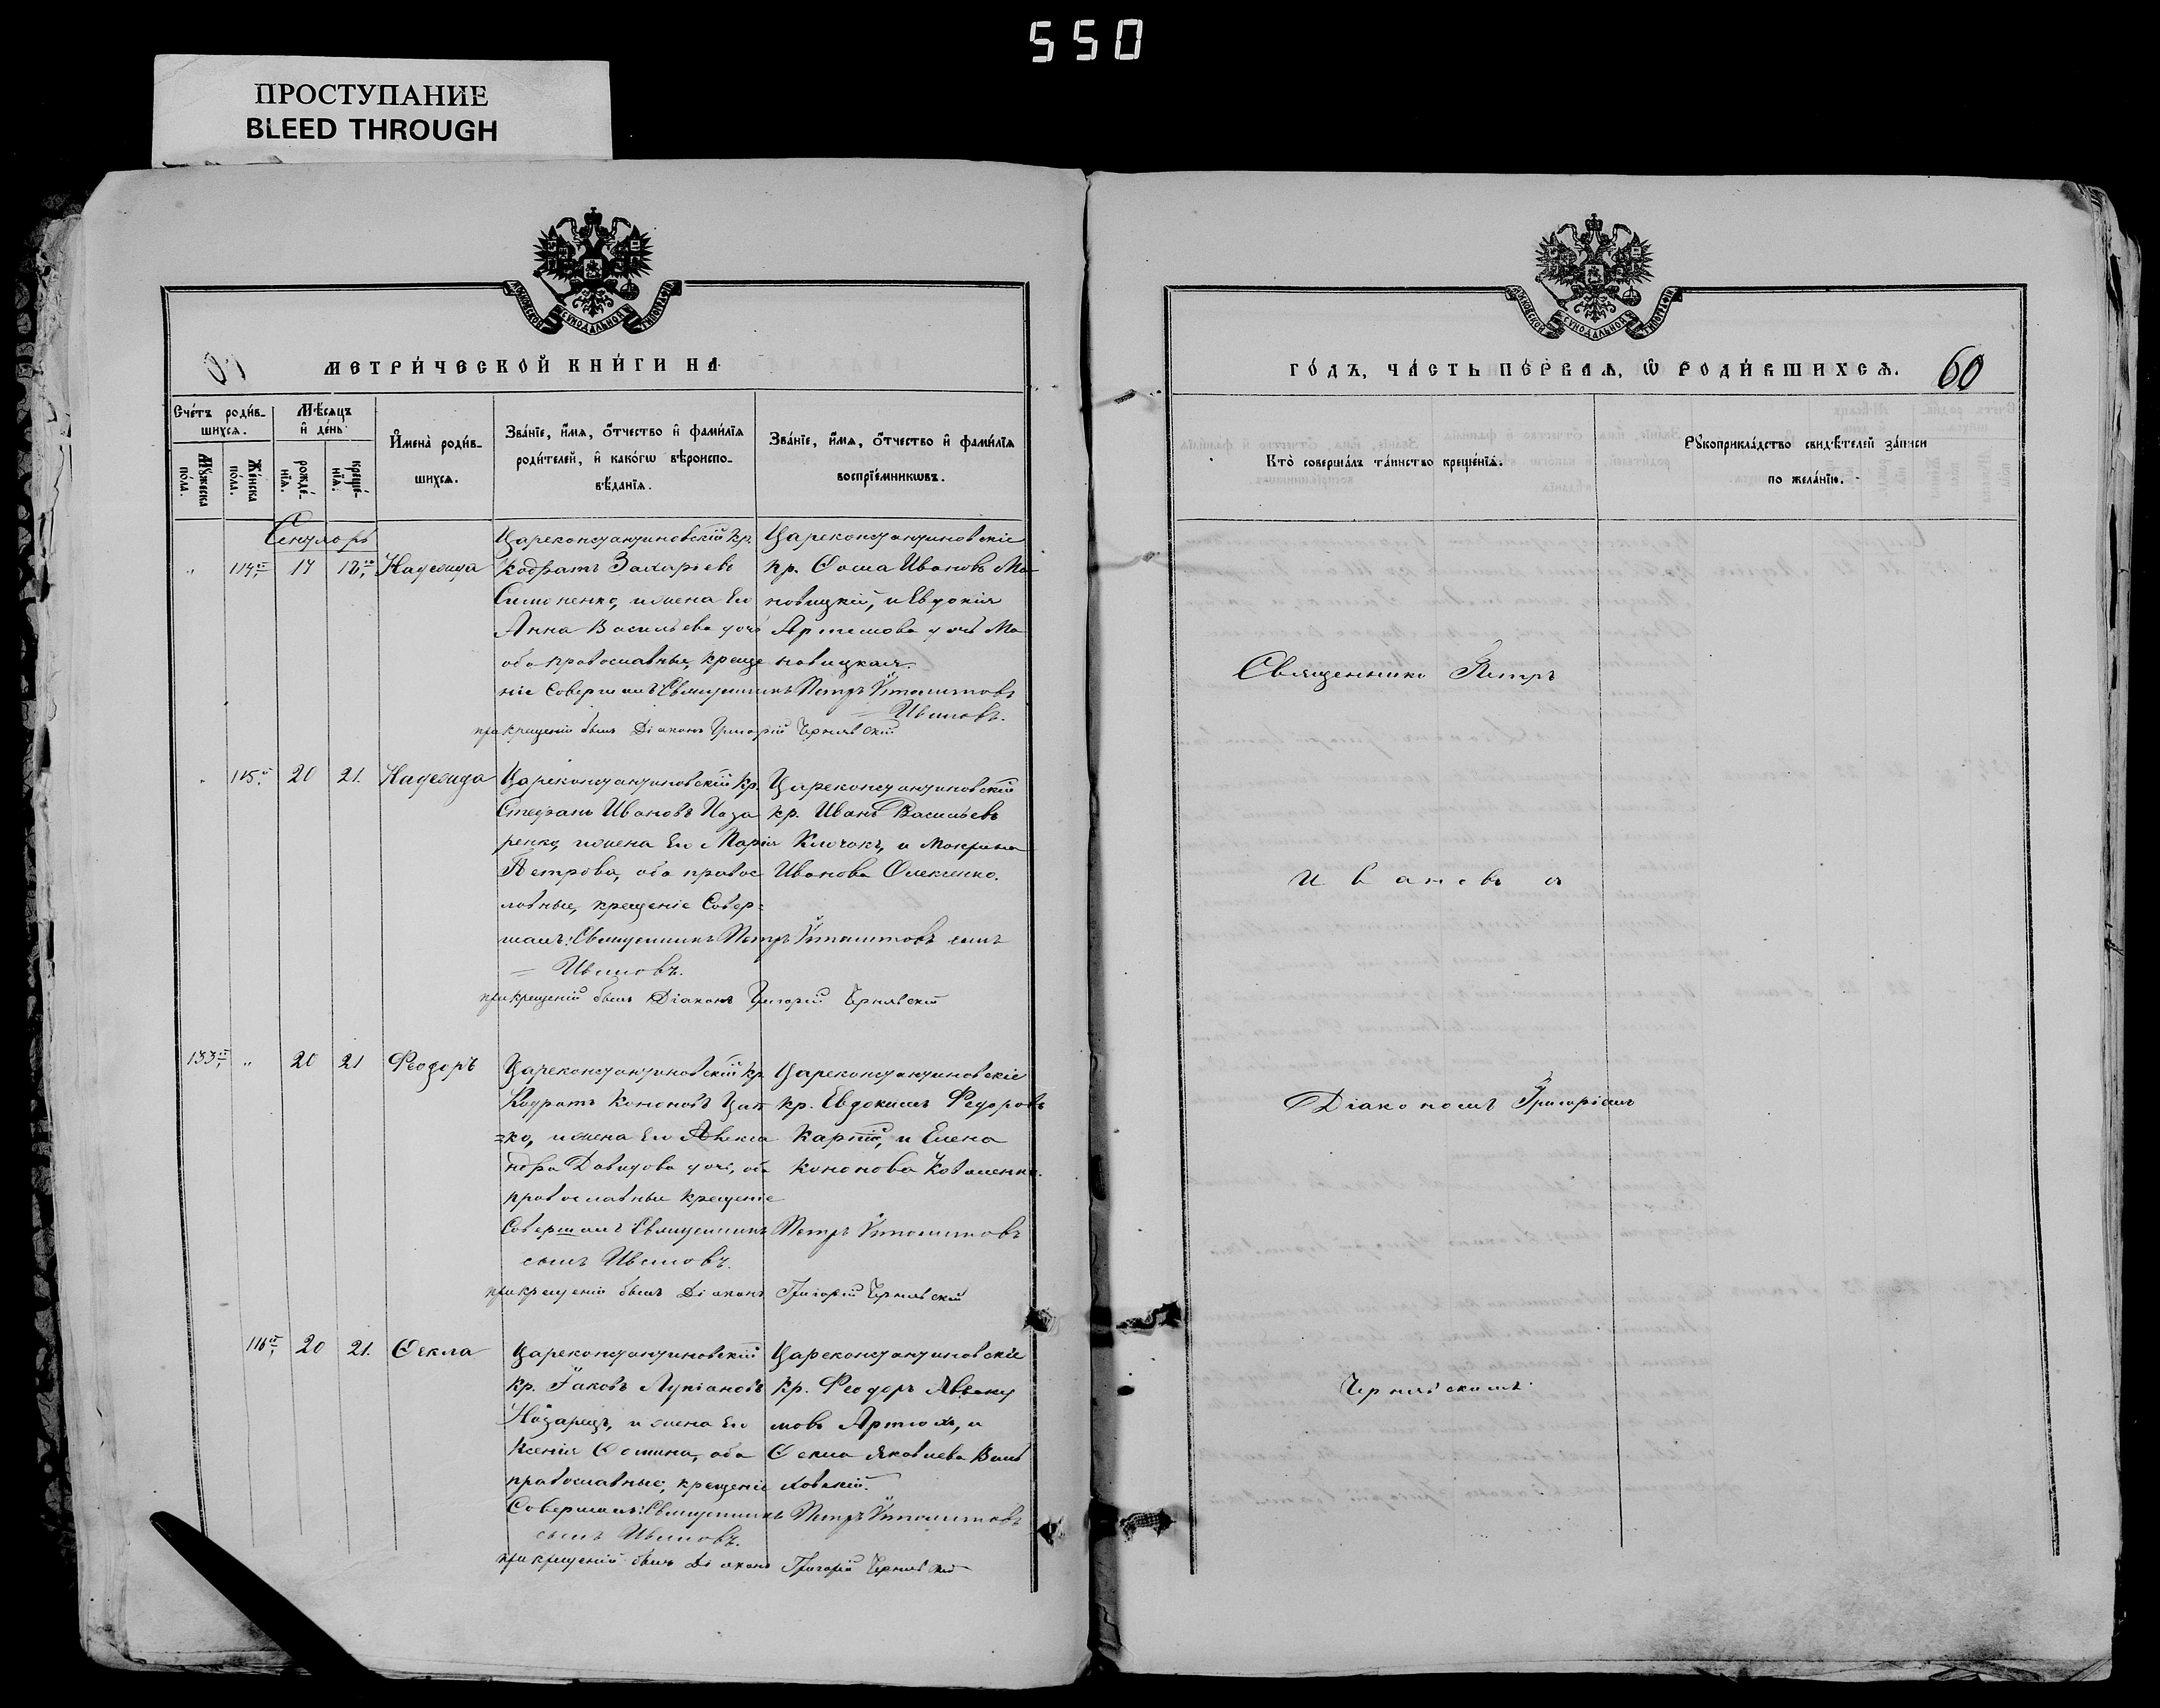 550
ПРОСТУПАНИЕ
BLEED THROUGH
МОСКОВСКОЙ СУНОДАЛЬНОЙ ТИПОГРАФІИ
МЕТРИ́ЧЕСКОЙ КНИ́ГИ НА
Сче́тъ роди́в-
шихсѧ.
Мѣ́сѧцъ
и҆ де́нь
Мꙋ́жеска по́ла.
Же́нска по́ла.
рожде́-нїѧ.
креще́-нїѧ.
И҆мена̀ роди́в-
шихсѧ.
Зва́нїе, и҆́мѧ, ѻ҆́тчество и҆ фамı́лїѧ
роди́телей, и҆ како́гѡ вѣроиспо-
вѣ́данїѧ.
Зва́нїе, и҆́мѧ, ѻ҆́тчество и҆ фамı́лїѧ
воспрїе́мникѡвъ.
Сентябрь
114 17 18 Надежда
Цареконстантиновскій кр.
Кодратъ Захарьевъ
Симоненко, и жена Его
Анна Васильева дочь
оба православные, креще
ніе Совершалъ: Священникъ Петръ
Ивановъ.
при крещеніи былъ Діаконъ Григорій Чернявскій
Цареконстантиновскіе
кр. Ѳома Ивановъ Ма-
новицкій, и Евдокія
Артемова дочь Ма
новицкая.
115 20 21. Надежда
Цареконстантиновскій кр.
Стефанъ Ивановъ Наза
ренко, и жена Его Марія
Петрова, оба правос
лавные, крещеніе Совер=
шалъ: Священникъ Петръ сынъ
= Ивановъ.
при крещеніи былъ Діаконъ Григорій Чернявскій
Цареконстантиновскій
кр. Иванъ Васильевъ
Клочокъ, и Мокрина
Иванова Олексенко.
133 20 21 Феодоръ
Цареконстантиновскій кр.
Кодратъ Кононовъ Цап
=ко, и жена Его Алекса
ндра Давидова дочь, оба
православные крещеніе
Совершалъ: Священникъ Петръ
сынъ Ивановъ.
при крещеніи былъ Діаконъ Григорій Чернявскій
Цареконстантиновскіе
кр. Евдокимъ Федоровъ
и Елена
Кононова Коваленко.
116 20 21. Ѳекла
Цареконстантиновскій
кр. Іаковъ Лукіановъ
Назарецъ, и жена Его
Ксенія Ѳомина, оба
православные, крещеніе
Совершалъ: Священникъ Петръ
сынъ Ивановъ.
при крещеніи былъ Діаконъ Григорій Чернявскій
Цареконстантиновскіе
кр. Феодоръ
Артюх, и
Ѳекла Яковлева
МОСКОВСКОЙ СУНОДАЛЬНОЙ ТИПОГРАФІИ
ГО́ДЪ, ЧА́СТЬ ПЕ́РВАѦ, Ѽ РОДИ́ВШИХСѦ.
60
Кто̀ соверша́лъ та́инство креще́нїѧ.
Рꙋкоприкла́дство свидѣ́телей за́писи
по жела́нїю.
Священникъ Петръ
Ивановъ съ
Діакономъ Григоріемъ
Чернявскимъ.